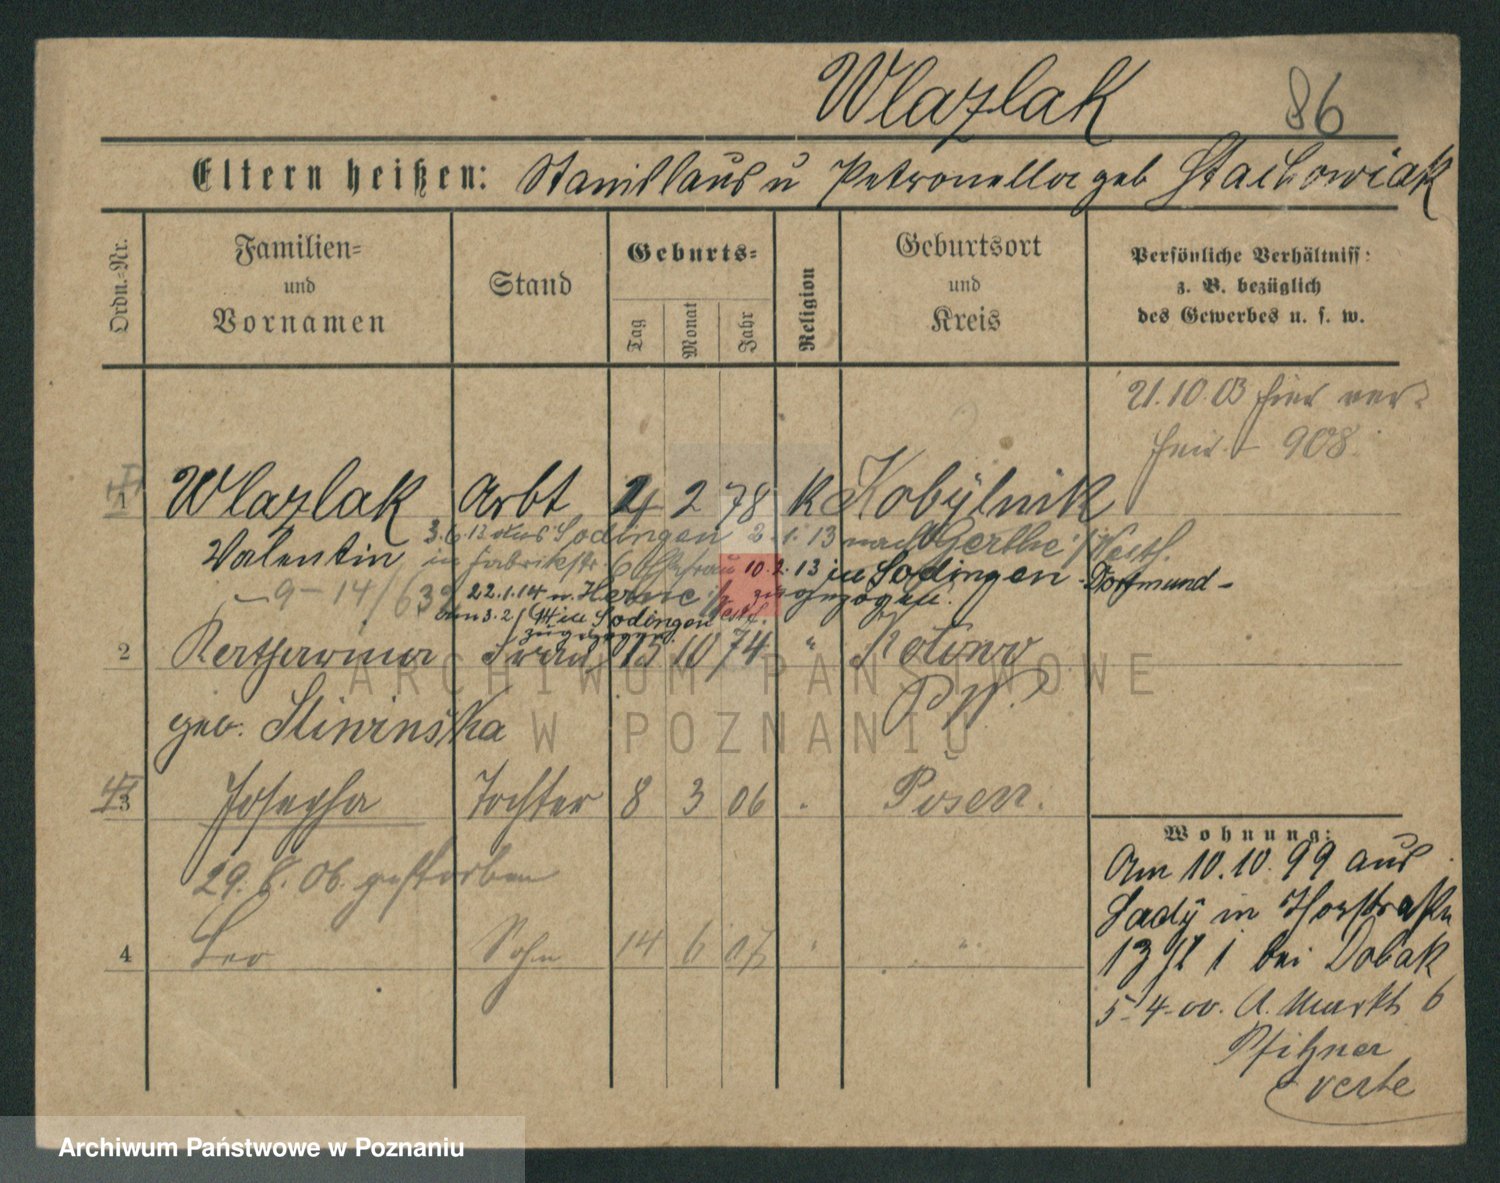 Wlazlak 86
Eltern heißen: Stanislaus u Petronella geb Stachowiak
Ordn.-Nr.
Familien-
und
Vornamen
Stand
Geburts-
Tag
Monat
Jahr
Religion
Geburtsort
und
Kreis
Persönliche Verhältniss:
z. B. bezüglich
des Gewerbes u. s. w.
21.10.03 hier ver-
heir. 908.
1 Wlazlak Arbt 4 2 78 K Kobylnik
3.6.12 aus Sodingen 2.1.13 nach Gerthe i/Westf.
Valentin in Fabrikstr 6 Ehefrau 10.2.13 in Sodingen Dortmund-
9-14/63 22.1.14 n. Herne i/Westf. zugezogen.
3.2/14 in Sodingen
zugezogen.
2 Katharina Frau 15 10 74 "
geb.
P.W.
3 Josepha Tochter 8 3 06 " Posen.
29.8.06. gestorben
4 Leo Sohn 14 6 07 " "
Wohnung:
Am 10.10.99 aus
in
13 I bei Dobak
5-4-00. A. Markt 6
Pfitzner
verte
ARCHIWUM PAŃSTWOWE
W POZNANIU
Archiwum Państwowe w Poznaniu